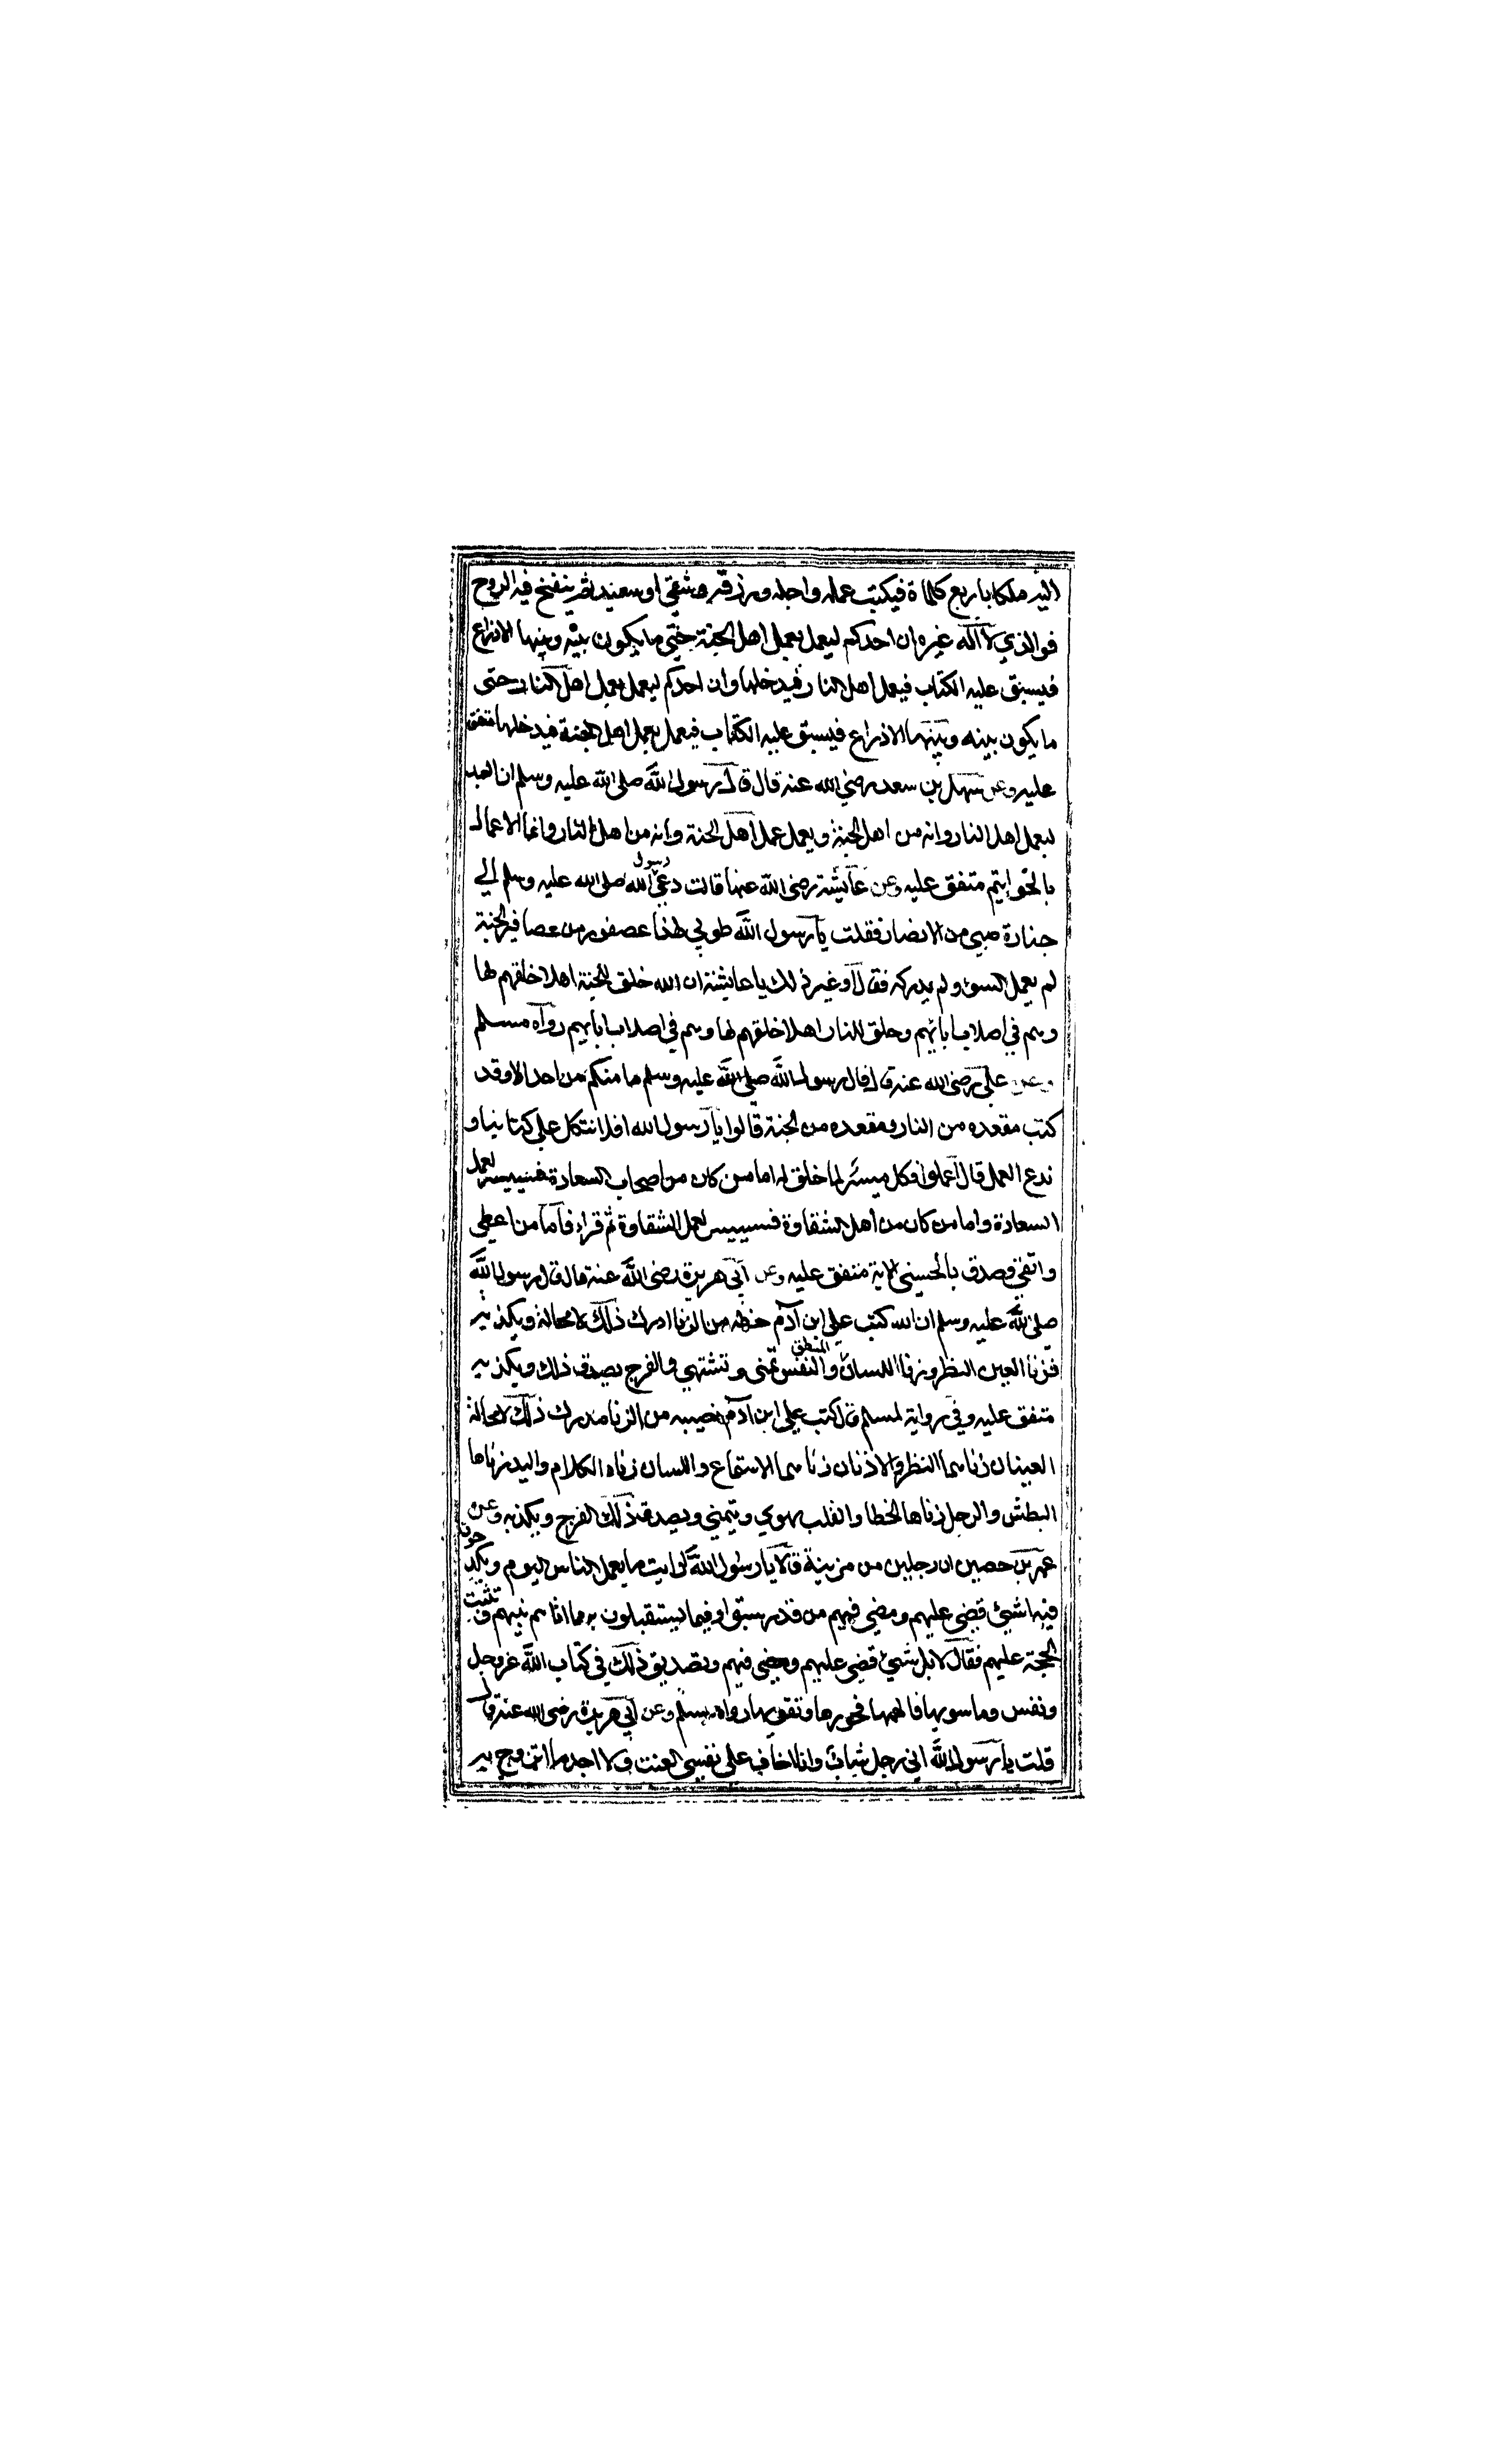 اليه ملكا باربع كلماة فيكتب عمله واجله ورزقه وشقي او سعيد ثم ينفخ فيه الروح
فوالذي لا اله غيره ان احدكم ليعمل بعمل اهل الجنة حتي ما يكون بينه وبينها الا ذراع
فيسبق عليه الكتاب فيعمل اهل النار فيدخلها وان احدكم ليعمل بعمل اهل النار حتى
ما يكون بينه وبينها الا ذراع فيسبق عليه الكتاب فيعمل بعمل اهل الجنة فيدخلها متفق
عليه وعن سهل بن سعد رضي الله عنه قال قال رسول الله صلى الله عليه وسلم ان العبد
ليعمل اهل النار وانه من اهل الجنة ويعمل عمل اهل الجنة وانه من اهل النار وانما الاعمال
بالخواتيم متفق عليه وعن عايشة رضى الله عنها قالت دعي رسول الله صلى الله عليه وسلم الي
جنازة صبي من الانصار فقلت يا رسول الله طوبي لهذا عصفور من عصافير الجنة
لم يعمل السوء ولم يدركه فقال او غير ذلك يا عايشة ان الله خلق للجنة اهلا خلقهم لها
وهم في اصلاب ابائهم وخلق للنار اهلا خلقهم لها وهم في اصلاب ابايهم رواه مسلم
وعن علي رضى الله عنه قال قال رسول الله صلى الله عليه وسلم ما منكم من احد الا وقد
كتب مقعده من النار ومقعده من الجنة قالوا يا رسول الله افلا نتكل علي كتابنا و
ندع العمل قال اعملوا فكل ميسر لما خلق له اما من كان من اصحاب السعادة فسييسر لعمل
السعادة واما من كان من اهل الشقاوة فسييسر لعمل الشقاوة ثم قراء فاما من اعطي
واتقى وصدق بالحسنى الاية متفق عليه وعن ابي هريرة رضى الله عنه قال قال رسول الله
صلى الله عليه وسلم ان الله كتب على ابن آدم حظه من الزنا ادرك ذلك لا محالة ويكذبه
فزنا العين النظر وزنا اللسان المنطق والنفس تمنى وتشتهي والفرج يصدق ذلك ويكذبه
متفق عليه وفي رواية لمسلم قال كتب علي ابن آدم نصيبه من الزنا مدرك ذلك لا محالة
العينان زناهما النظر والاذنان زناهما الاستماع واللسان زناه الكلام واليد زناها
البطش والرجل زناها الخطا والقلب يهوي ويتمني ويصدق ذلك الفرج ويكذبه وعن
عمر بن حصين ان رجلين من مزينة قالا يا رسول الله ارايت ما يعمل الناس اليوم ويكدحون
فيها شيئ قضي عليهم ومضي فيهم من قدر سبق او فيما يستقبلون به مما اتاهم نبيهم وتثبت
الحجة عليهم فقال لا بل شيئ قضي عليهم ومضي فيهم وتصديق ذلك في كتاب الله عز وجل
ونفس وما سويها فالهمها فجورها وتقويها رواه مسلم وعن ابي هريرة رضى الله عنه قال
قلت يا رسول الله اني رجل شاب وانا اخاف على نفسي العنت ولا اجد ما اتزوج به